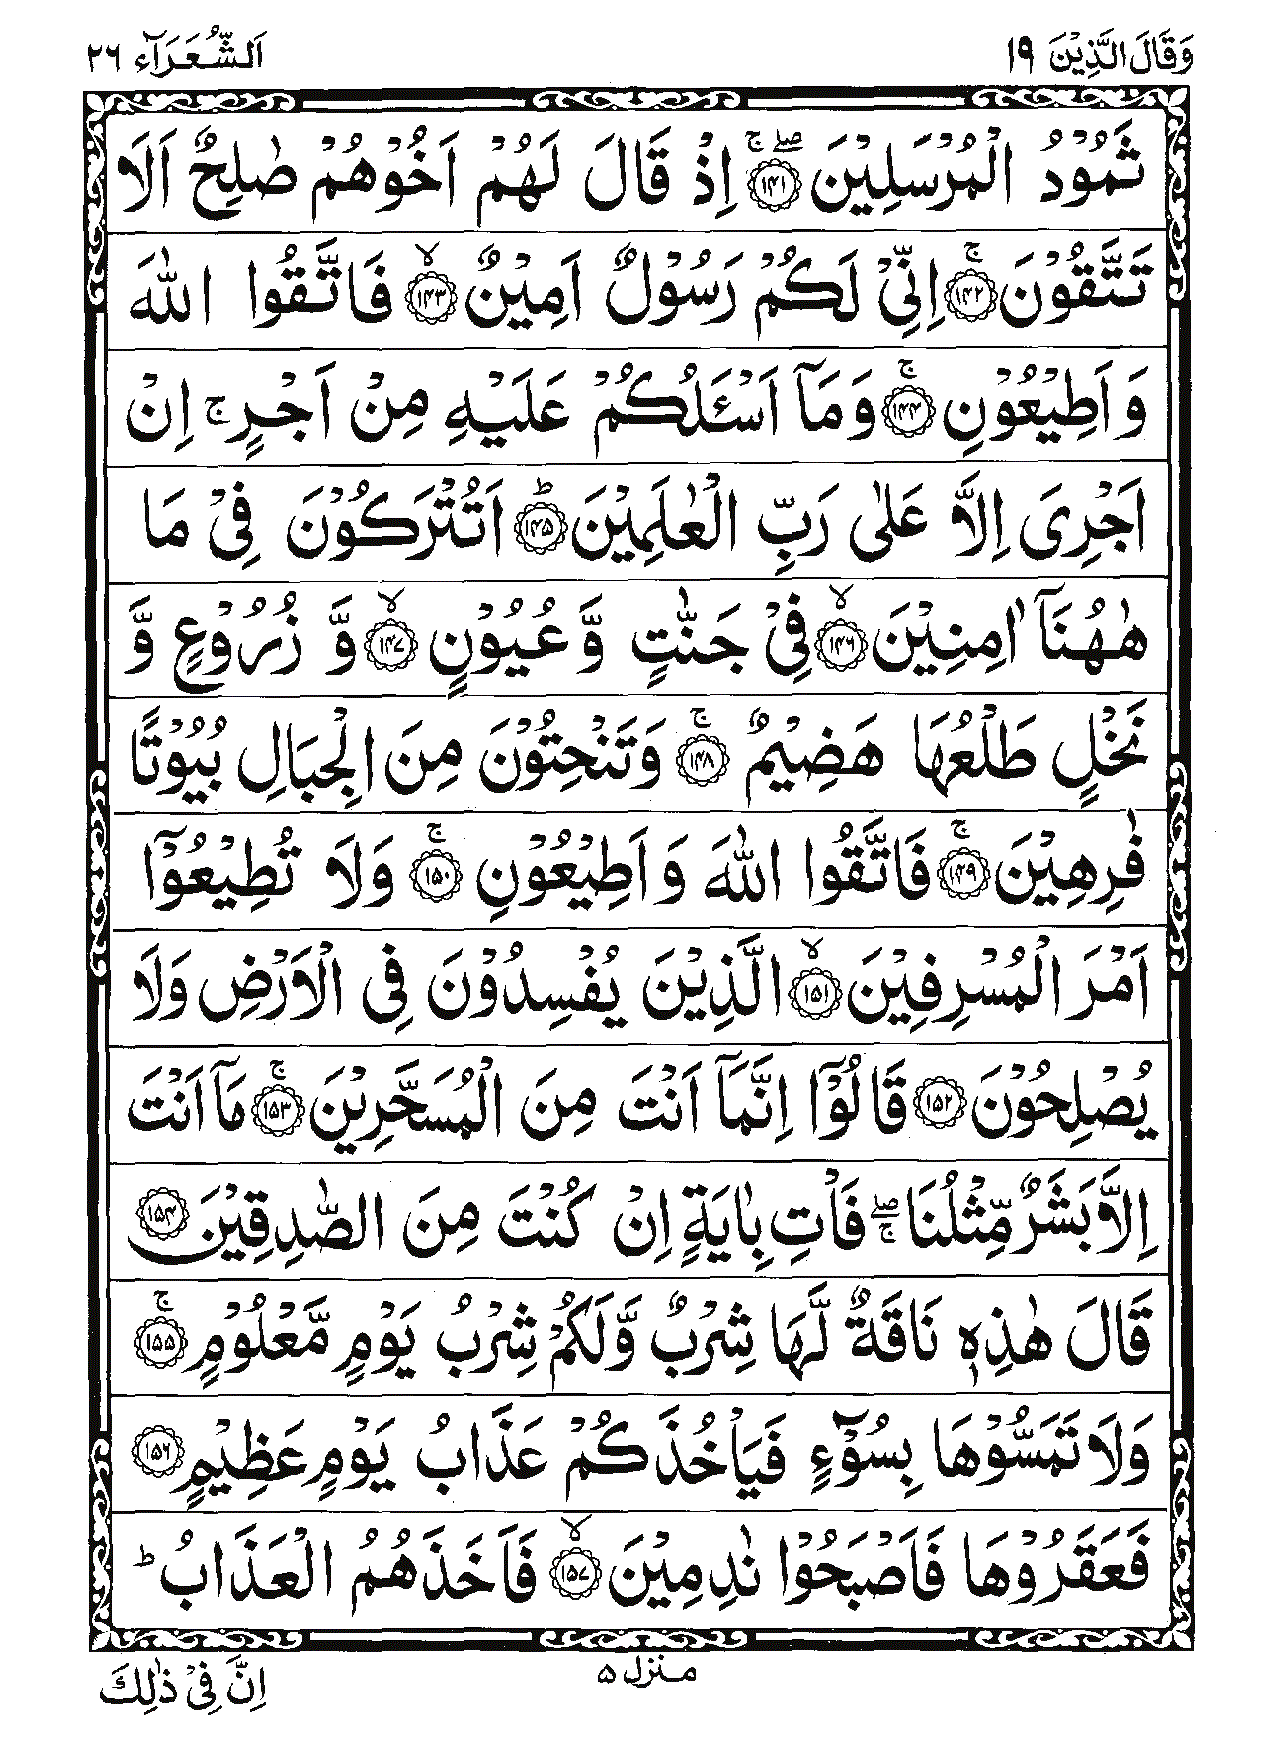 وَقَالَ الَّذِيْنَ ١٩
اَلشُّعَرَآء ٢٦
ثَمُوْدُ الْمُرْسَلِيْنَ ۖۚ‏﴿۱۴۱﴾ اِذْ قَالَ لَهُمْ اَخُوْهُمْ صٰلِحٌ اَلَا
تَتَّقُوْنَ ۚ‏﴿۱۴۲﴾ اِنِّىْ لَكُمْ رَسُوْلٌ اَمِيْنٌ ۙ‏﴿۱۴۳﴾ فَاتَّقُوا اللّٰهَ
وَ اَطِيْعُوْنِ ۚ‏﴿۱۴۴﴾ وَمَاۤ اَسْـَٔـلُكُمْ عَلَيْهِ مِنْ اَجْرٍ ۚ اِنْ
اَجْرِىَ اِلَّا عَلٰى رَبِّ الْعٰلَمِيْنَ ؕ‏﴿۱۴۵﴾ اَتُتْرَكُوْنَ فِىْ مَا
هٰهُنَاۤ اٰمِنِيْنَ ۙ‏﴿۱۴۶﴾ فِىْ جَنّٰتٍ وَّ عُيُوْنٍ ۙ‏﴿۱۴۷﴾ وَّ زُرُوْعٍ وَّ
نَخْلٍ طَلْعُهَا هَضِيْمٌ ۚ‏﴿۱۴۸﴾ وَتَنْحِتُوْنَ مِنَ الْجِبَالِ بُيُوْتًا
فٰرِهِيْنَ ۚ‏﴿۱۴۹﴾ فَاتَّقُوا اللّٰهَ وَ اَطِيْعُوْنِ ۚ‏﴿۱۵۰﴾ وَلَا تُطِيْعُوْۤا
اَمْرَ الْمُسْرِفِيْنَ ۙ‏﴿۱۵۱﴾ الَّذِيْنَ يُفْسِدُوْنَ فِى الْاَرْضِ وَلَا
يُصْلِحُوْنَ ‏﴿۱۵۲﴾ قَالُوْۤا اِنَّمَاۤ اَنْتَ مِنَ الْمُسَحَّرِيْنَ ۚ‏﴿۱۵۳﴾ مَاۤ اَنْتَ
اِلَّا بَشَرٌ مِّثْلُنَا ۖۚ فَاْتِ بِاٰيَةٍ اِنْ كُنْتَ مِنَ الصّٰدِقِيْنَ ‏﴿۱۵۴﴾
قَالَ هٰذِهٖ نَاقَةٌ لَّهَا شِرْبٌ وَّلَكُمْ شِرْبُ يَوْمٍ مَّعْلُوْمٍ ۚ‏﴿۱۵۵﴾
وَلَا تَمَسُّوْهَا بِسُوْٓءٍ فَيَاْخُذَكُمْ عَذَابُ يَوْمٍ عَظِيْمٍ ‏﴿۱۵۶﴾
فَعَقَرُوْهَا فَاَصْبَحُوْا نٰدِمِيْنَ ۙ‏﴿۱۵۷﴾ فَاَخَذَهُمُ الْعَذَابُ ؕ
منزل ٥
اِنَّ فِىْ ذٰلِكَ